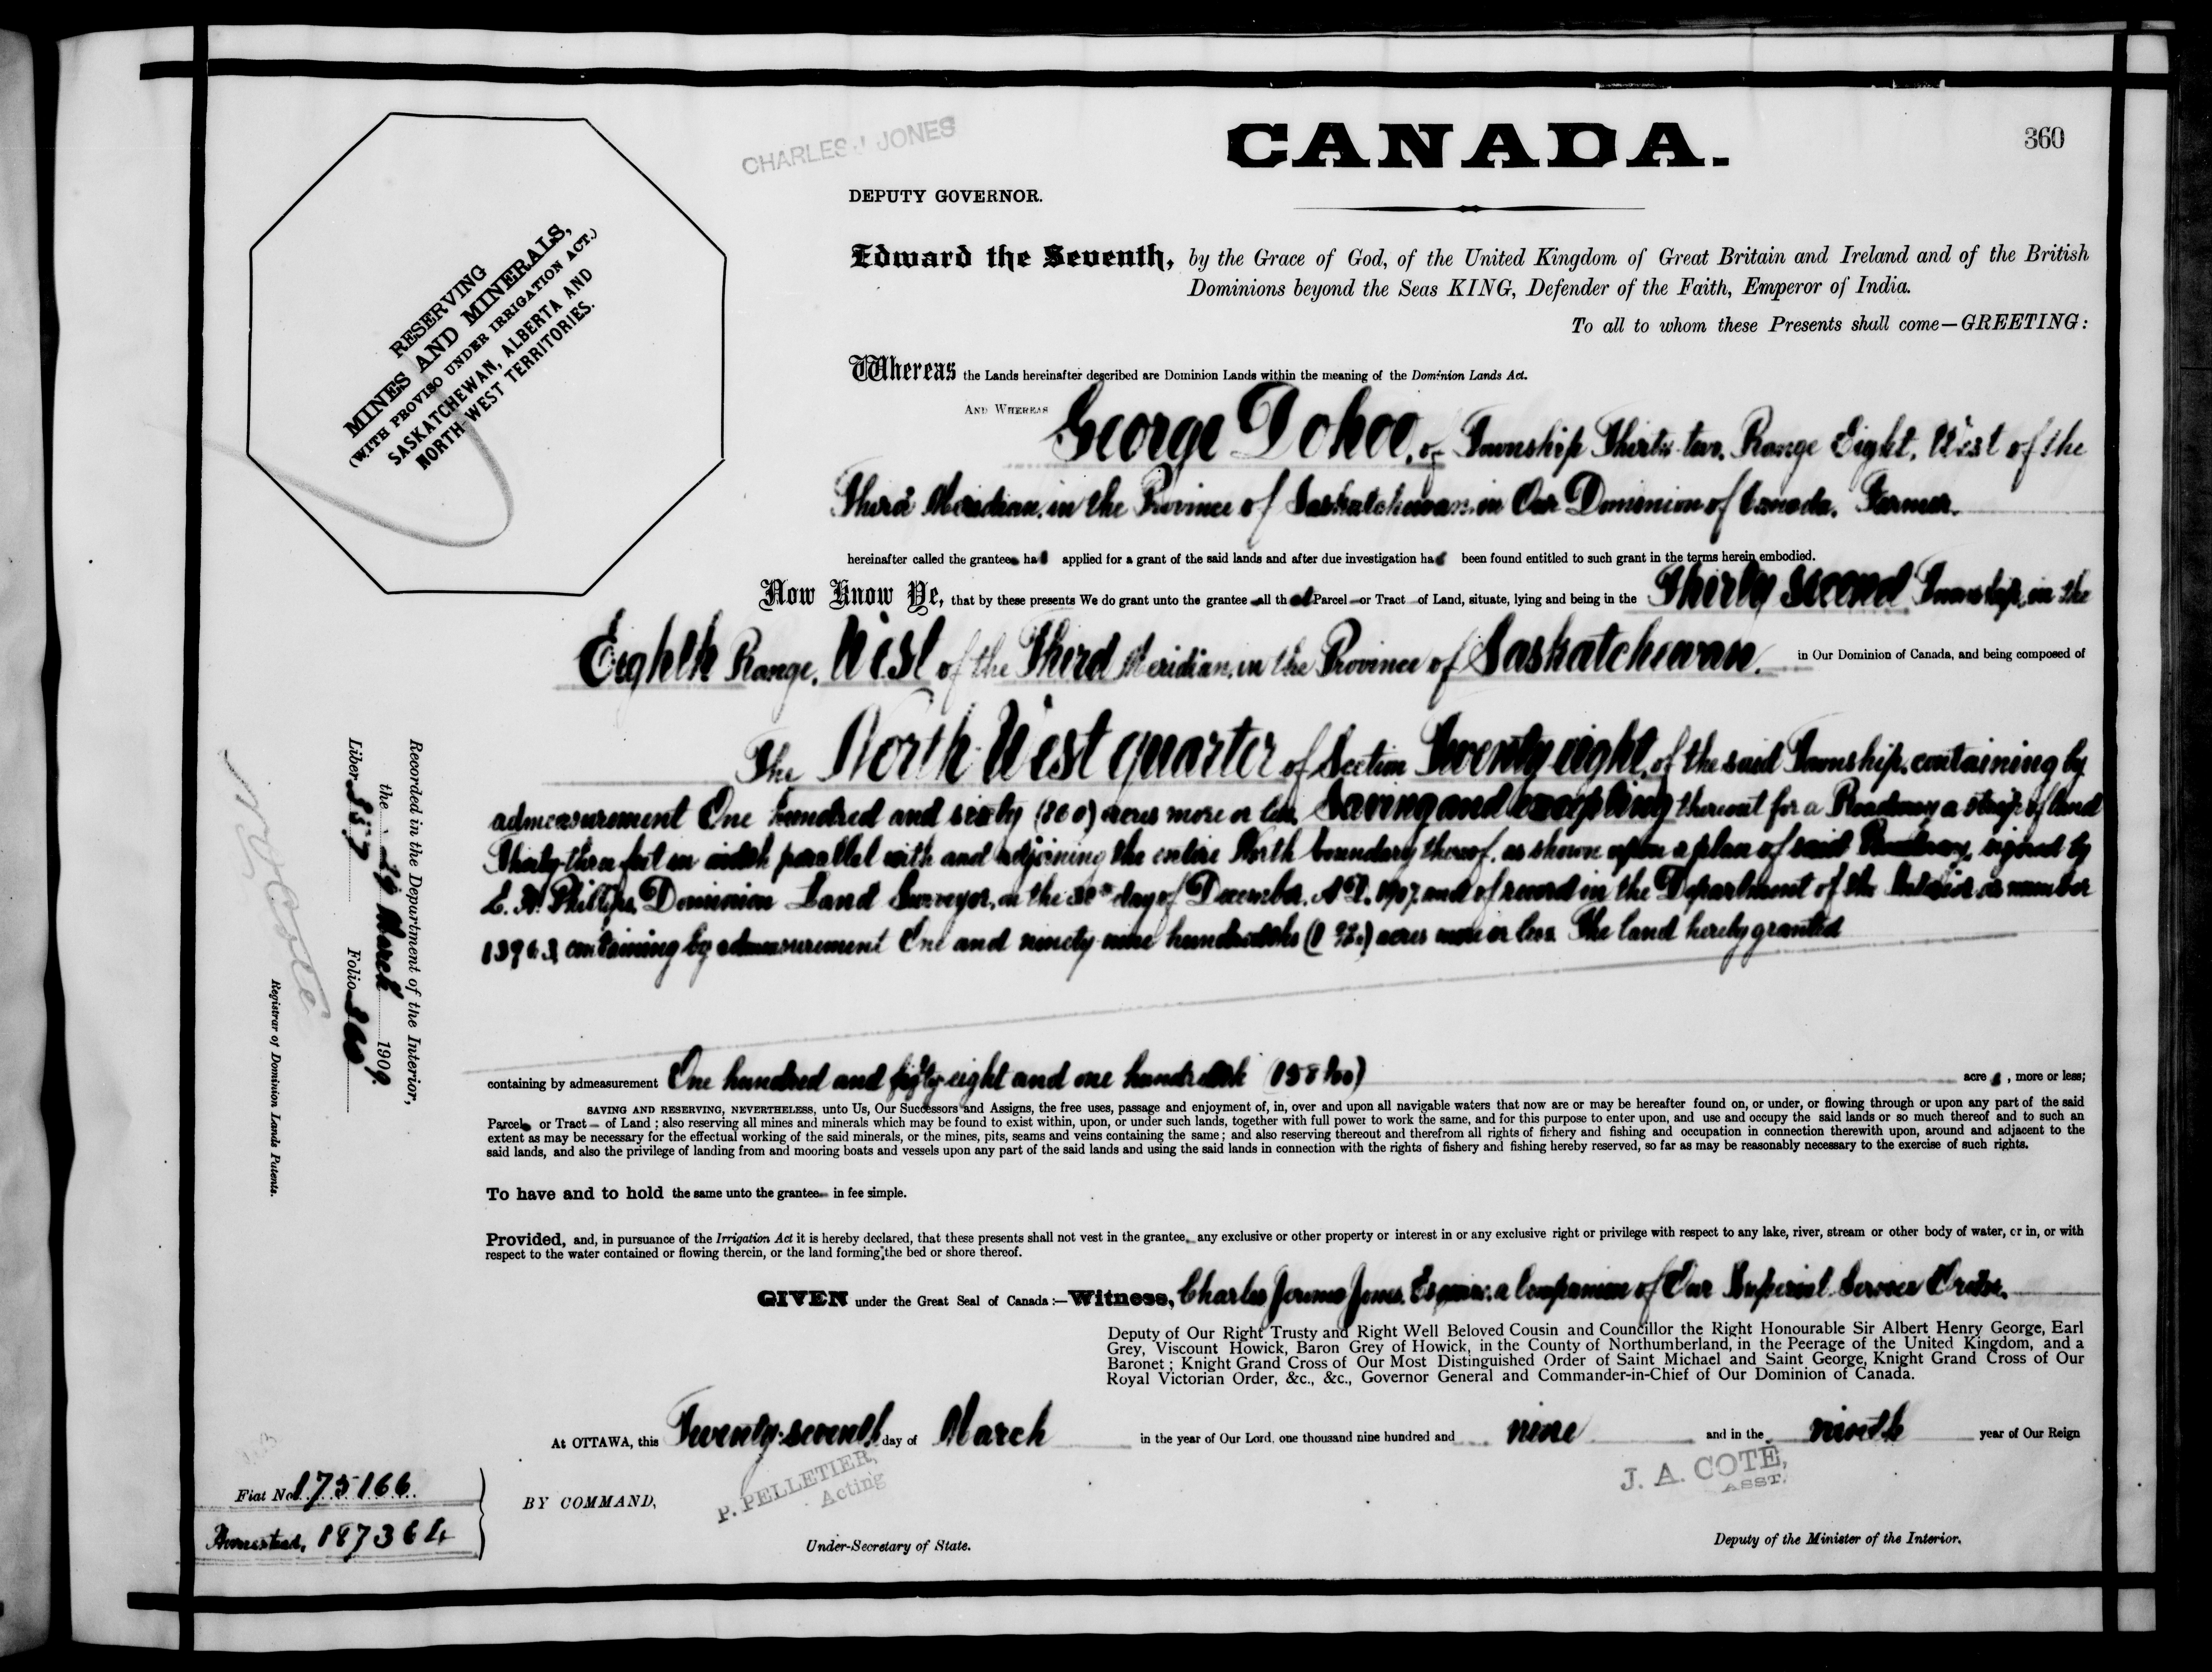 360
CHARLES J JONES
CANADA.
DEPUTY GOVERNOR.
RESERVING
MINES AND MINERALS,
(WITH PROVISO UNDER IRRIGATION ACT.)
SASKATCHEWAN, ALBERTA AND
NORTH-WEST TERRITORIES.
Edward the Seventh, by the Grace of God, of the United Kingdom of Great Britain and Ireland and of the British
Dominions beyond the Seas KING, Defender of the Faith, Emperor of India.
To all to whom these Presents shall come—GREETING:
Whereas the Lands hereinafter described are Dominion Lands within the meaning of the Dominion Lands Act.
AND WHEREAS George Dohoo, of Township Thirty-two, Range Eight, West of the
Third Meridian, in the Province of Saskatchewan, in Our Dominion of Canada, Farmer.
hereinafter called the grantee has applied for a grant of the said lands and after due investigation has been found entitled to such grant in the terms herein embodied.
Now Know Ye, that by these presents We do grant unto the grantee all that Parcel or Tract of Land, situate, lying and being in the Thirty second Township, in the
Eighth Range, West of the Third Meridian, in the Province of Saskatchewan. in Our Dominion of Canada, and being composed of
The North West quarter of Section Twenty eight, of the said Township, containing by
admeasurement One hundred and sixty (160) acres more or less, Saving and excepting thereout for a Roadway a strip of land
Thirty-three feet in width parallel with and adjoining the entire North boundary thereof, as shown upon a plan of said Roadway, signed by
Phillips, Dominion Land Surveyor, on the 30th day of December, A.D. 1907 and of record in the Department of the Interior as number
containing by admeasurement One and ninety nine hundredths acres more or less The land hereby granted
containing by admeasurement One hundred and fifty eight and one hundredth acres, more or less;
SAVING AND RESERVING, NEVERTHELESS, unto Us, Our Successors and Assigns, the free uses, passage and enjoyment of, in, over and upon all navigable waters that now are or may be hereafter found on, or under, or flowing through or upon any part of the said
Parcel or Tract of Land; also reserving all mines and minerals which may be found to exist within, upon, or under such lands, together with full power to work the same, and for this purpose to enter upon, and use and occupy the said lands or so much thereof and to such an
extent as may be necessary for the effectual working of the said minerals, or the mines, pits, seams and veins containing the same; and also reserving thereout and therefrom all rights of fishery and fishing and occupation in connection therewith upon, around and adjacent to the
said lands, and also the privilege of landing from and mooring boats and vessels upon any part of the said lands and using the said lands in connection with the rights of fishery and fishing hereby reserved, so far as may be reasonably necessary to the exercise of such rights.
To have and to hold the same unto the grantee in fee simple.
Provided, and, in pursuance of the Irrigation Act it is hereby declared, that these presents shall not vest in the grantee, any exclusive or other property or interest in or any exclusive right or privilege with respect to any lake, river, stream or other body of water, or in, or with
respect to the water contained or flowing therein, or the land forming the bed or shore thereof.
GIVEN under the Great Seal of Canada:—Witness, Charles Jerome Jones, Esquire, a Companion of Our Imperial Service Order,
Deputy of Our Right Trusty and Right Well Beloved Cousin and Councillor the Right Honourable Sir Albert Henry George, Earl
Grey, Viscount Howick, Baron Grey of Howick, in the County of Northumberland, in the Peerage of the United Kingdom, and a
Baronet; Knight Grand Cross of Our Most Distinguished Order of Saint Michael and Saint George, Knight Grand Cross of Our
Royal Victorian Order, &c., &c., Governor General and Commander-in-Chief of Our Dominion of Canada.
At OTTAWA, this Twenty-seventh day of March in the year of Our Lord, one thousand nine hundred and nine and in the ninth year of Our Reign
BY COMMAND,
P. PELLETIER,
Acting
Under-Secretary of State.
J. A. COTE,
ASST.
Deputy of the Minister of the Interior.
Recorded in the Department of the Interior,
the 29 March 1909.
Liber Folio 360
N O Coté
Registrar of Dominion Lands Patents.
Fiat No. 175166
Homestead, 187364